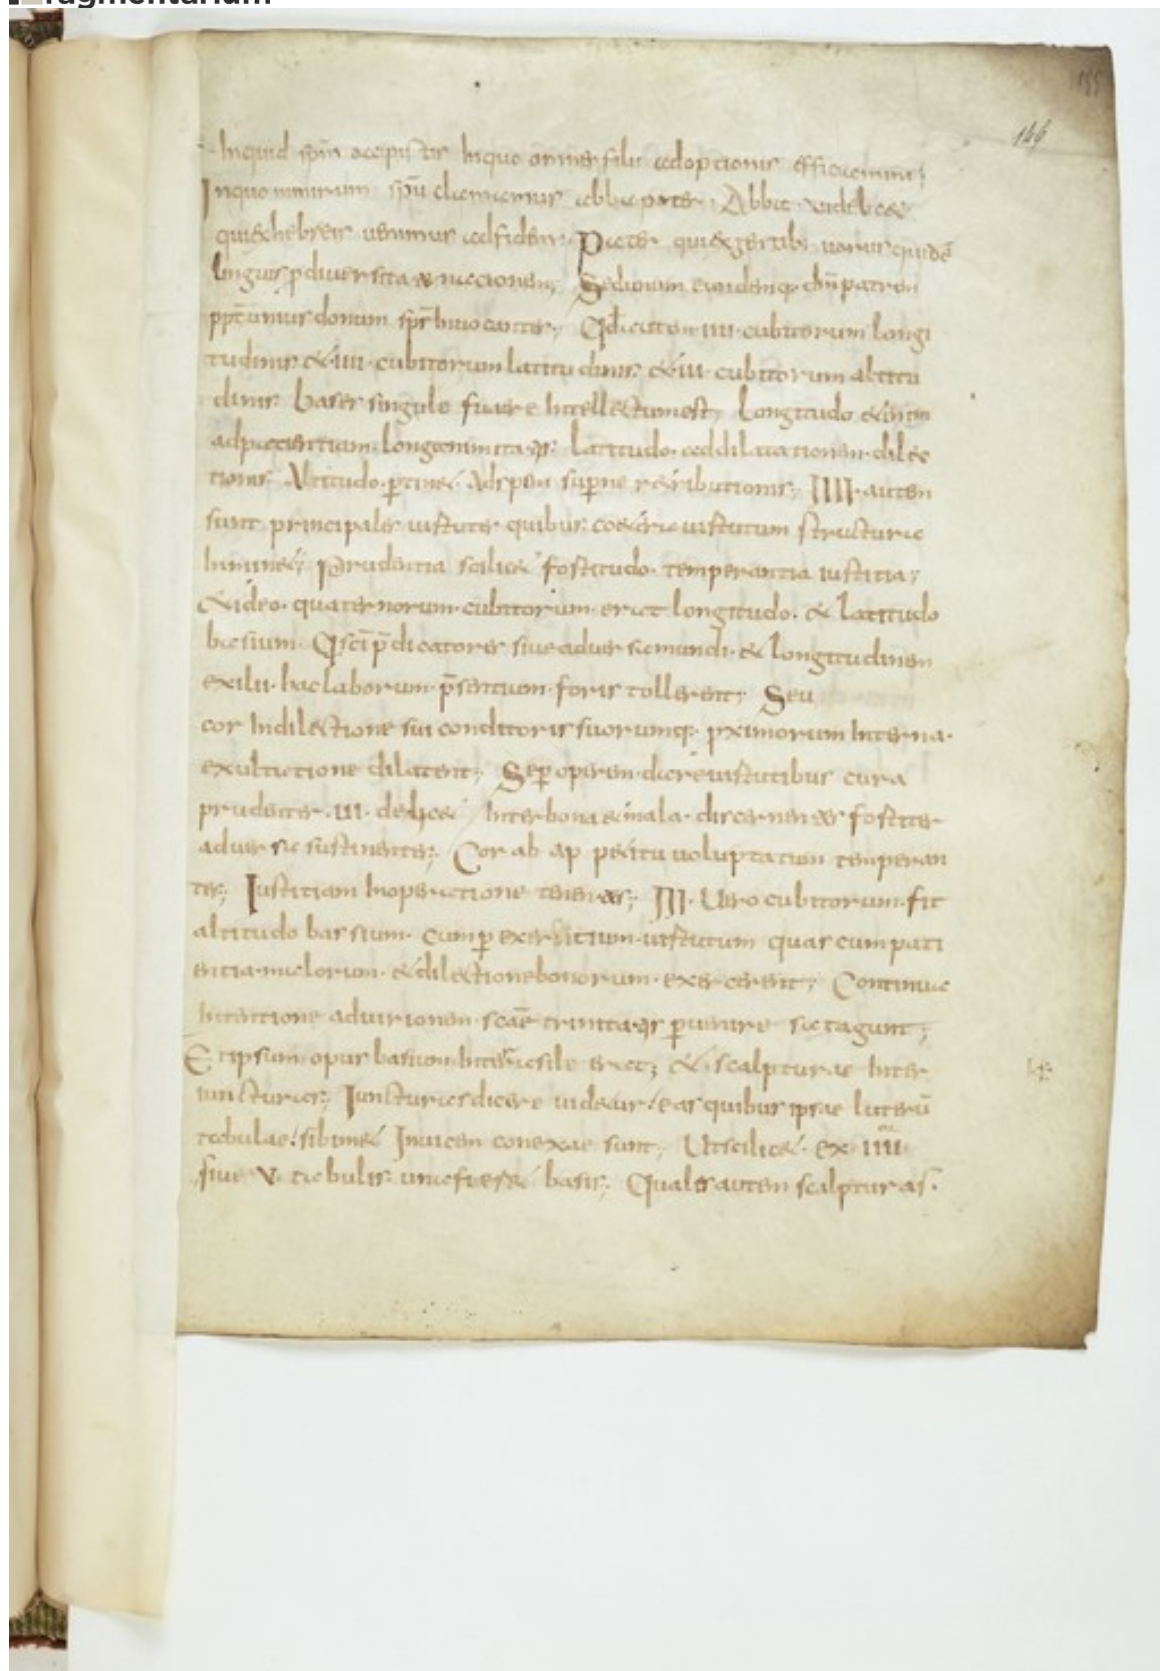 fragmentarium
155
146
Inquid sp̄m accepistis Inquo omnes filii adoptionis efficiemini;
Inquo nimirum sp̄u clamamus abba pater. Abba videlicet
qui ex hebreis venimus ad fidem. Pater qui ex gentibus quidē
linguis p diversitate nacionem; Sed unum eundemq; dn̄m patrem
ppt̄ unius donum sp̄s Invocantes; Qd̄ autem IIII cubitorum longi
tudinis & IIII cubitorum latitudinis & III cubitorum altitu
dinis bases singule fuere Intellectum est; Longitudo enim
ad pacientiam longanimitatis. Latitudo ad dilatationem dilec
tionis. Altitudo ptinet Ad spem supne retributionis; IIII autem
sunt principales virtutes quibus cetera virtutum structura
Inminet; Prudentia scilicet fortitudo temperantia iustitia;
& ideo quaternorum cubitorum erat longitudo & latitudo
basium. Q sc̄i p̄dicatores sive adversa mundi & longitudinem
exilii hac laborum p̄sentium foris tollerent; Seu
cor Indilectione sui conditoris suorumq; pximorum Interna
exultatione dilatent; Semp operam dare virtutibus cura
prudenter Inter bona & mala discernentes fortiter
adversa sustinentes; Cor ab appetitu voluptatum temperan
tes; Iustitiam Inoperatione tenentes; III Vero cubitorum fit
altitudo basium. Cum p exercitium virtutum quas cum pati
entia malorum & dilectione bonorum exercerent; Continua
Intentione ad visionem sc̄ae trinitatis pvenire satagunt;
Et ipsum opus basium Interrasile erat; & scalpturae Inter
iuncturas; Iuncturas dicere videtur eas quibus ipsae laterū
tabulae sibimet Invicem conexae sunt; Ut scilicet ex IIII
sive V tabulis una fieret basis; Quales autem scalpturas